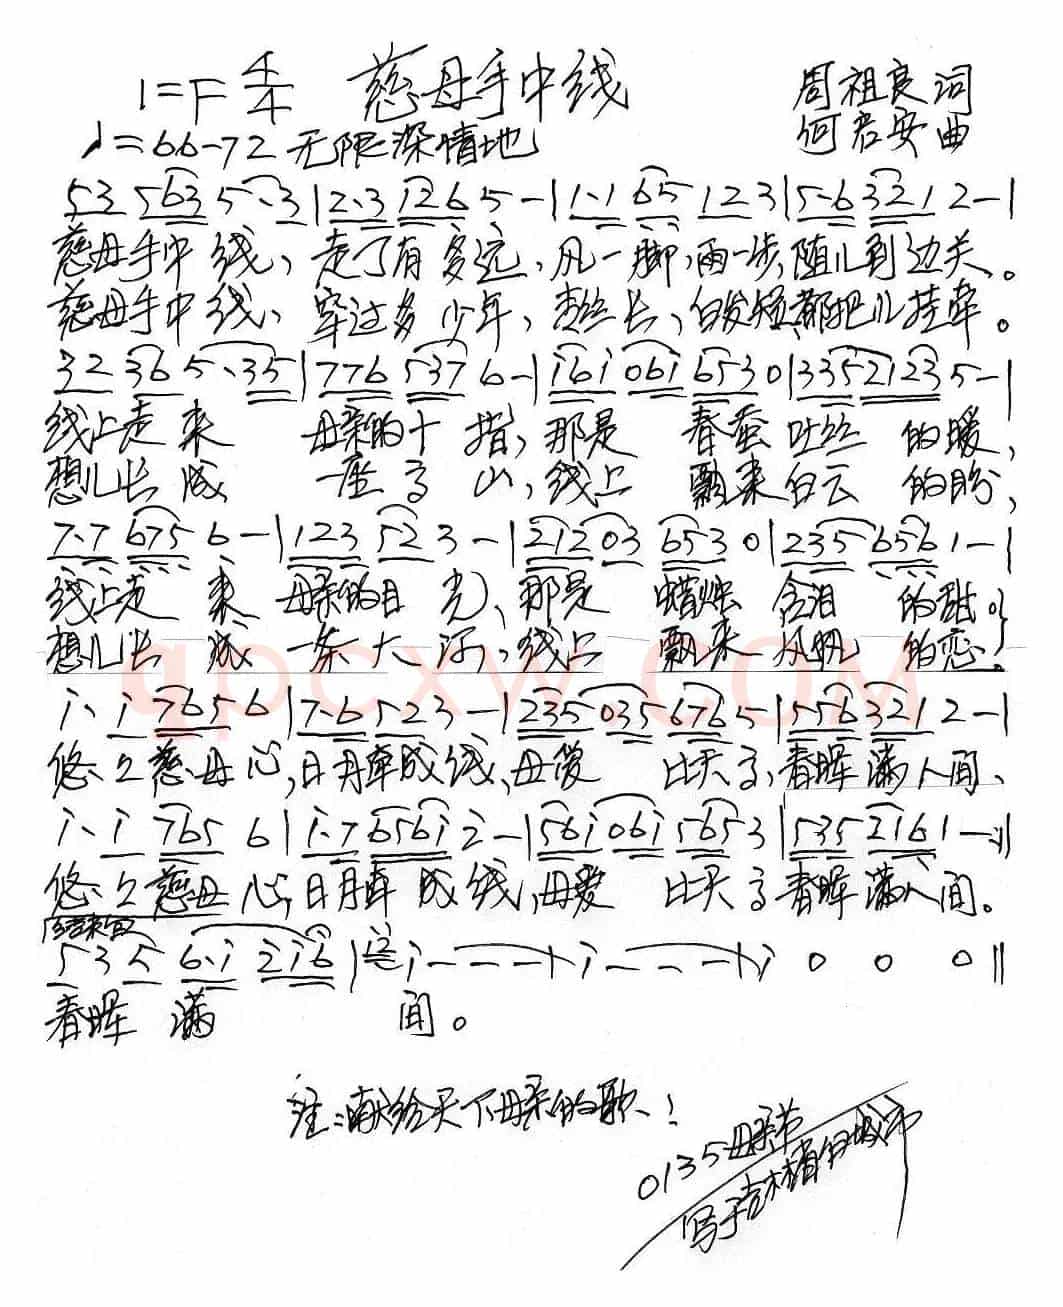 1=F 4/4 慈母手中线 周祖良 词
♩=66-72 无限深情地 何君安 曲
53 563 5·3|2·3 126 5-|1·1 65 123|5·6 3212-|
慈母手中线,走了有多远,风一脚,雨一步,随儿到边关。
慈母手中线,穿过多少年,丝长,白发短都把儿挂牵。
32 36 5·35|776 537 6-|i6i 06i 6530|335 2123 5-|
线上走来 母亲的十指,那是 春蚕吐丝 的暖,
想儿长成 一座高山,线上 飘来白云 的盼,
7·7 675 6-|123 523-|212 03 6530|235 656 1-|
线上走来 母亲的目光,那是 蜡烛含泪 的甜。
想儿长成 一条大河,线上 飘来风帆 的恋。
qpcxw.com
i·i 7656|7·6 523-|235 035 676 5|556 3212-|
悠久慈母心,日月牵成线,母爱 比天高,春晖满人间、
i·i 765 6|i·7 656i 2-|56i 06i 565 3|535 2161-:||
悠久慈母心,日月牵成线,母爱 比天高春晖满人间。
结束句
5 35 6·i 2i6|i---|i---|i 0 0 0||
春晖 满 间。
注:献给天下母亲的歌!
0135母亲节
写于 城市